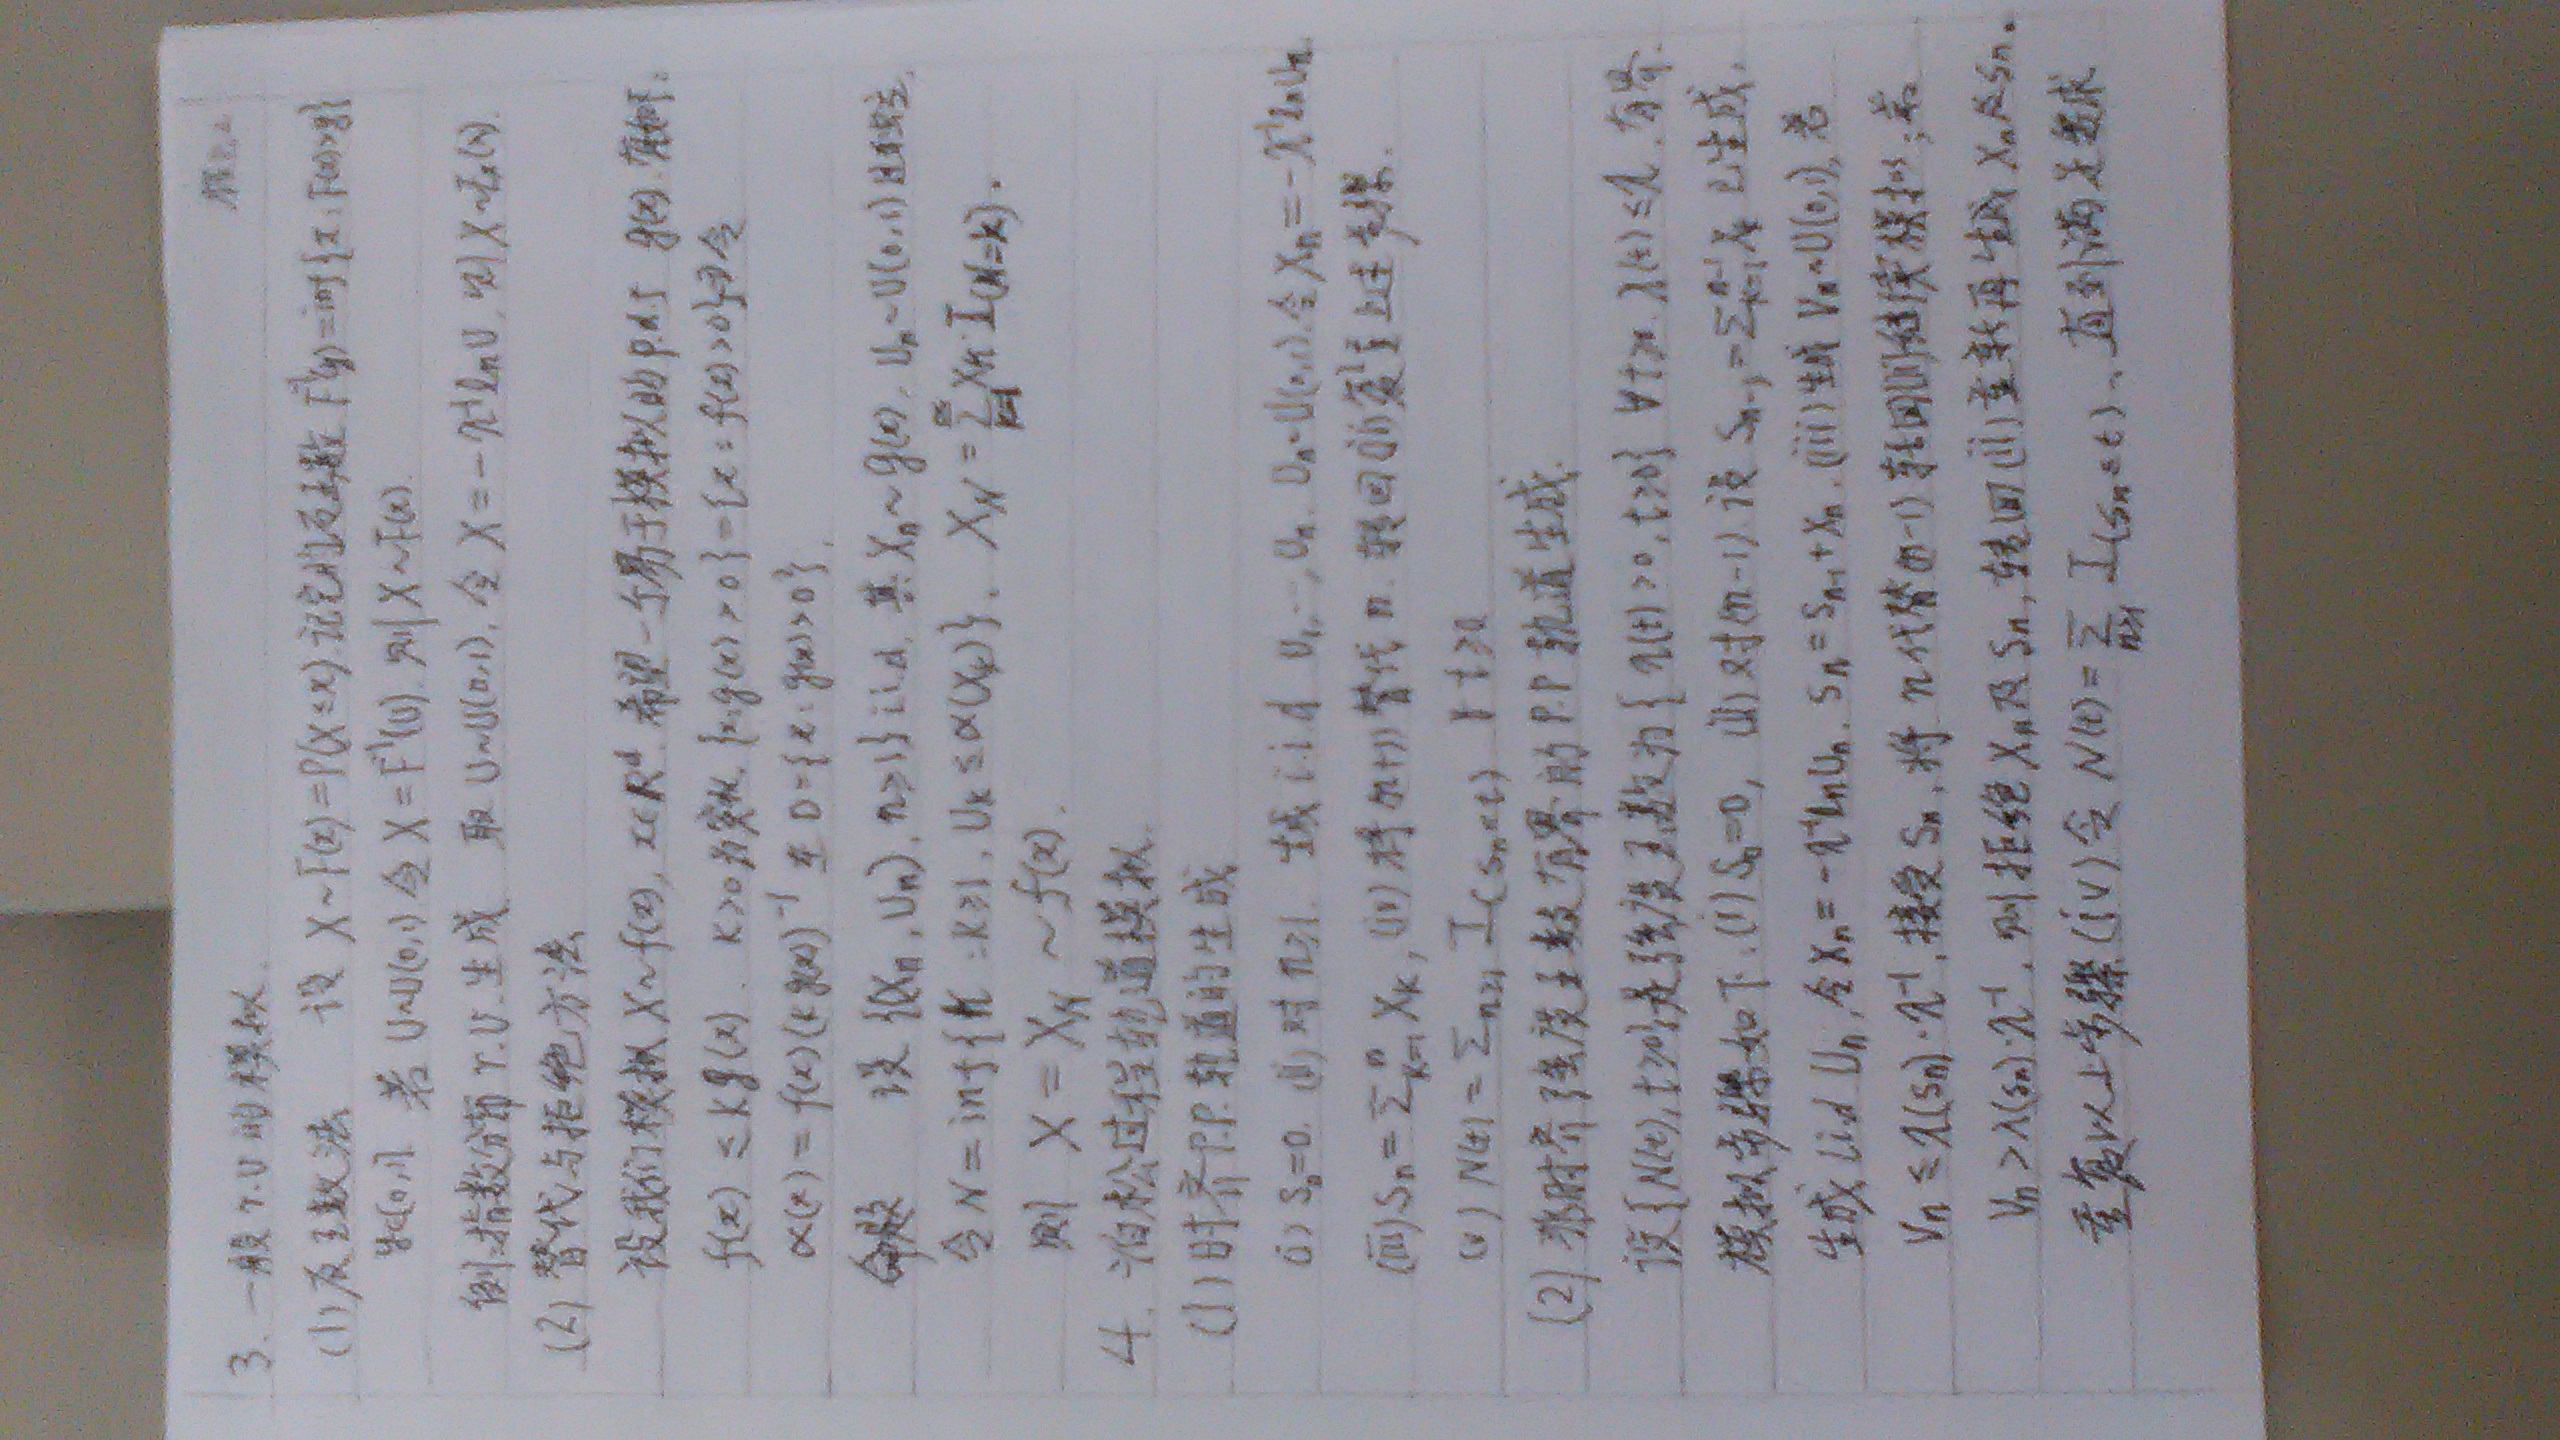 3. 一般 r.v 的模拟.
(1) 反函数法 设 X~F(x)=P(X≤x). 记它的反函数 F⁻¹(y)=inf{x: F(x)>y}
y∈[0,1]. 若 U~U(0,1) 令 X=F⁻¹(U). 则 X~F(x).
例: 指数分布 r.v. 生成 取 U~U(0,1), 令 X=-λ⁻¹lnU, 则 X~
(2) 替代与拒绝方法
设我们模拟 X~f(x), x∈Rᵈ. 希望一个易于模拟的 p.d.f g(x).
f(x) ≤ kg(x). k>0 为实数. {x: g(x)>0}={x: f(x)>0} 令
α(x)=f(x)(kg(x))⁻¹ 在 D={x: g(x)>0}.
命题 设 {(Xₙ,Uₙ), n≥1} i.i.d. 其 Xₙ~g(x), Uₙ~U(0,1) 且独立.
令 N=inf{k: k≥1, Uₖ≤α(Xₖ)}. X_N=∑ Xₖ I(N=k).
则 X=X_N ~ f(x).
4. 泊松过程轨道模拟
(1) 时齐 P.P. 轨道的生成
(i) S₀=0. (ii) 对 n≥1. 生成 i.i.d U₁,…,Uₙ. Uₙ~U(0,1) 令 Xₙ=-λ⁻¹lnUₙ
(iii) Sₙ=∑ₖ₌₁ⁿ Xₖ, (iv) 将 (n+1) 替代 n. 转回 (ii) 重复上述步骤.
(v) N(t)=∑ₙ≥₁ I(Sₙ≤t) ∀ t≥0.
(2) 非时齐强度函数有界的 P.P 轨道生成.
设 {N(t), t≥0} 是强度函数为 {λ(t)>0, t≥0} ∀t≥0. λ(t)≤λ. 有界.
模拟步骤如下. (i) S₀=0, (ii) 对 (n-1) 设 Sₙ₋₁=∑ₖ₌₁ⁿ⁻¹ Xₖ 已生成,
生成 i.i.d Uₙ, 令 Xₙ=-λ⁻¹lnUₙ. Sₙ=Sₙ₋₁+Xₙ. (iii) 生成 Vₙ~U(0,1), 若
Vₙ≤λ(Sₙ)·λ⁻¹, 接受 Sₙ, 将 n 代替 (n-1) 转回 (ii) 继续模拟; 若
Vₙ>λ(Sₙ)·λ⁻¹, 则拒绝 Xₙ及Sₙ, 转回 (ii) 重新再生成 Xₙ及Sₙ.
重复以上步骤. (iv) 令 N(t)=∑ₙ≥₁ I(Sₙ≤t). 直到满足要求